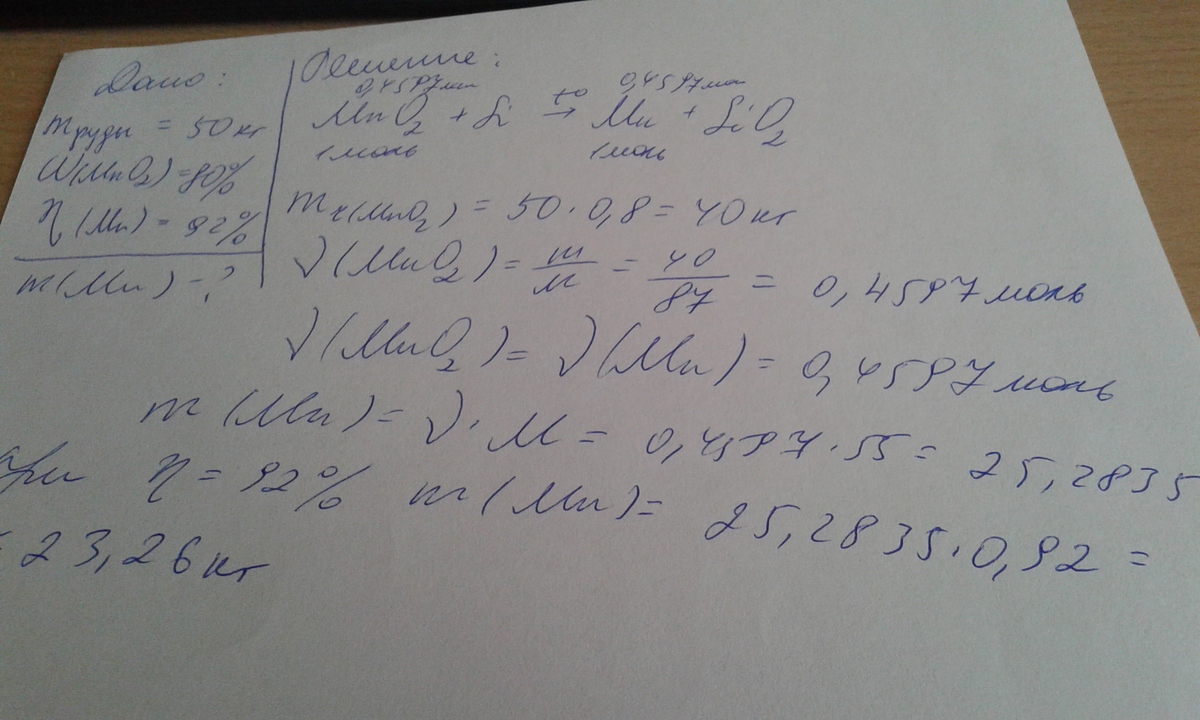 Дано:
m руды = 50 кг
W(MnO2) = 80%
η (Mn) = 92%
m(Mn) - ?
Решение:
0,4597 мол 0,4597 мол
MnO2 + Si t° → Mn + SiO2
1 моль 1 моль
m (MnO2) = 50 · 0,8 = 40 кг
ν (MnO2) = m/M = 40/87 = 0,4597 моль
ν (MnO2) = ν (Mn) = 0,4597 моль
m (Mn) = ν · M = 0,4597 · 55 = 25,2835
При η = 92% m (Mn) = 25,2835 · 0,92 =
= 23,26 кг